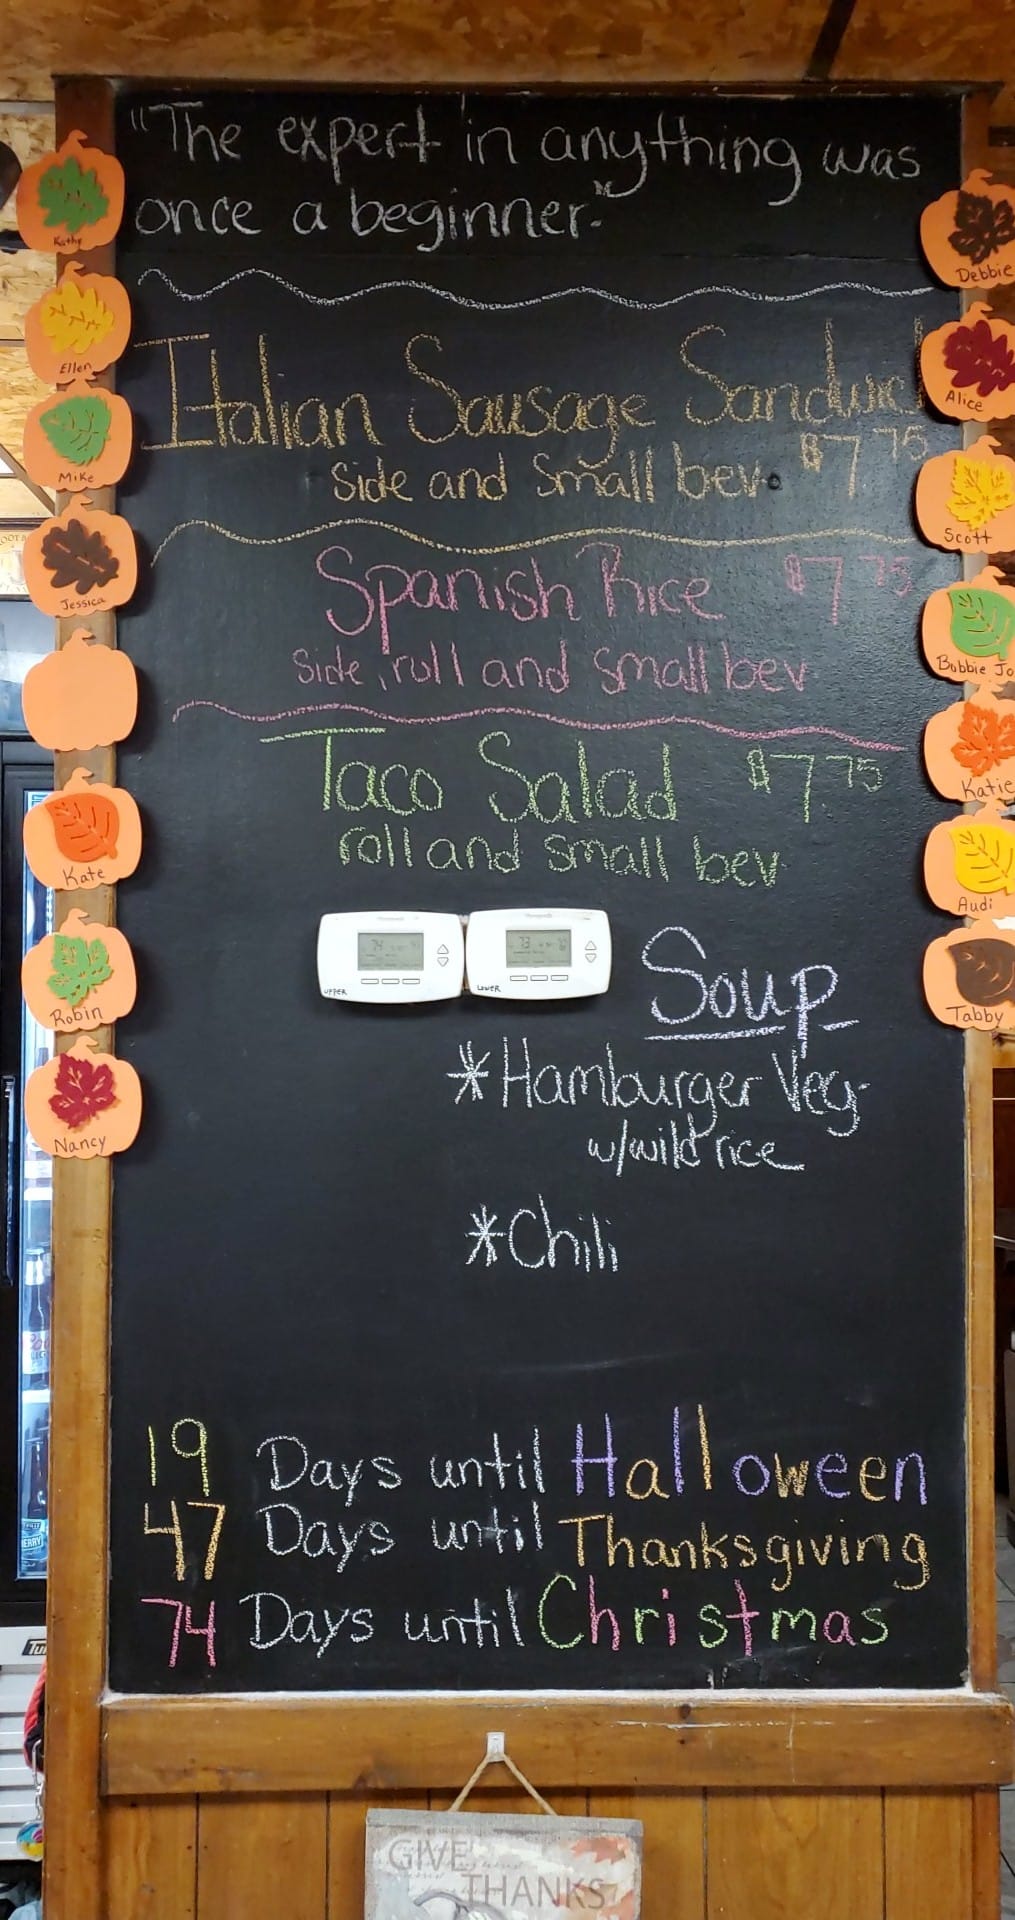 "The expert in anything was
once a beginner."
Italian Sausage Sandwich
side and small bev. $7.75
Spanish Rice $7.75
side, roll and small bev
Taco Salad $7.75
roll and small bev.
UPPER
74
LOWER
73
Soup
*Hamburger Veg.
w/wild rice
*Chili
19 Days until Halloween
47 Days until Thanksgiving
74 Days until Christmas
Kathy
Ellen
Mike
Jessica
Kate
Robin
Nancy
Debbie
Alice
Scott
Bobbie Jo
Katie
Audi
Tabby
GIVE
THANKS